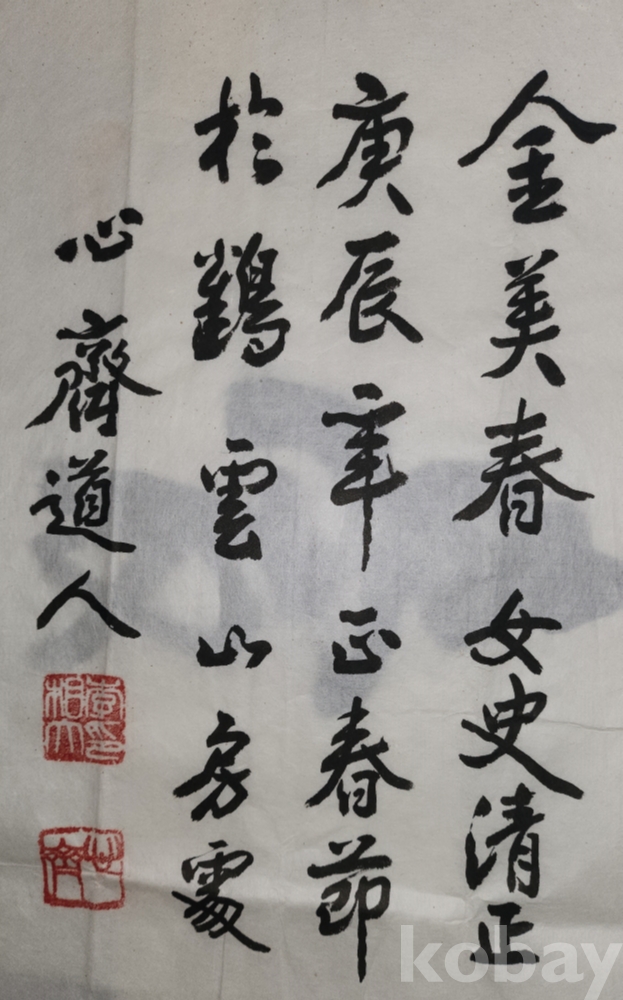 金美春女史清正
庚辰年正春節
於鶴雲山房處
心齋道人
心齊
kobay